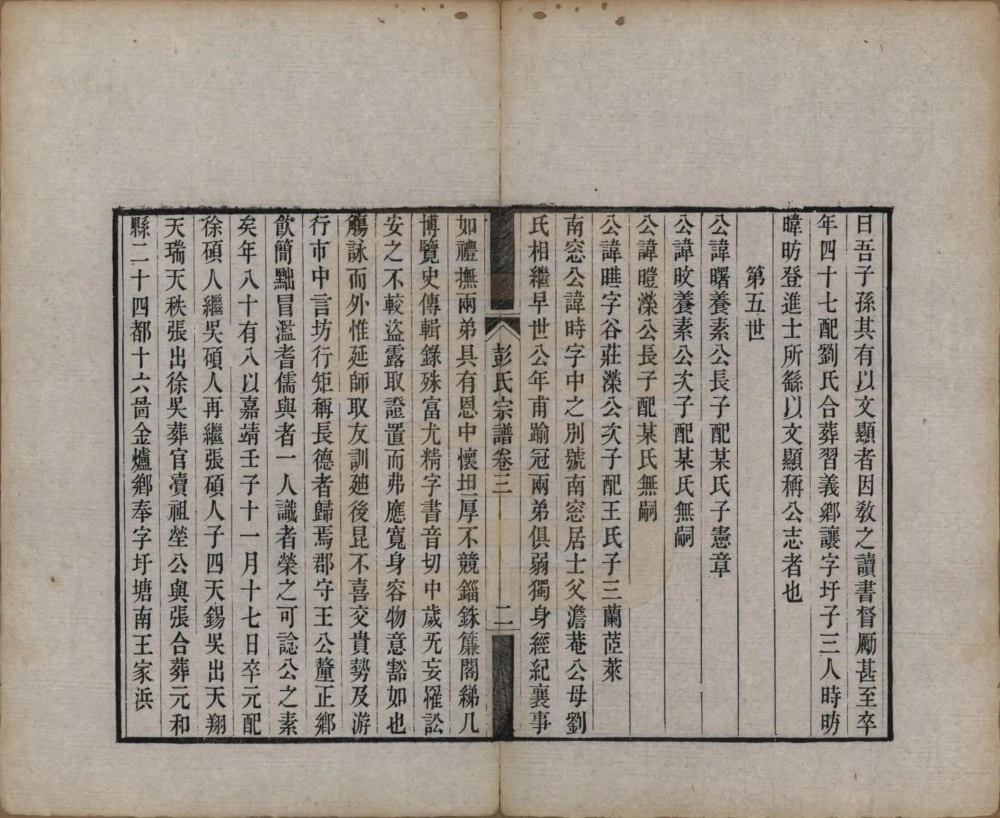 曰吾子孫其有以文顯者因敎之讀書督勵甚至卒
年四十七配劉氏合葬習義鄉讓字圩子三人時昉
暐昉登進士所繇以文顯稱公志者也
第五世
公諱曙養素公長子配某氏子憲章
公諱旼養素公次子配某氏無嗣
公諱暟濼公長子配某氏無嗣
公諱曕字谷莊濼公次子配王氏子三蘭茝萊
南窓公諱時字中之別號南窓居士父澹菴公母劉
氏相繼早世公年甫踰冠兩弟俱弱獨身經紀襄事
彭氏宗譜卷三
二
如禮撫兩弟具有恩中懷坦厚不競錙銖簾閣綈几
博覽史傳輯錄殊富尤精字書音切中歲旡妄罹訟
安之不較盜露取證置而弗應寬身容物意豁如也
觴詠而外惟延師取友訓廸後昆不喜交貴勢及游
行市中言坊行矩稱長德者歸焉郡守王公釐正鄉
飮簡黜冒濫耆儒與者一人識者榮之可諗公之素
矣年八十有八以嘉靖壬子十一月十七日卒元配
徐碩人繼吳碩人再繼張碩人子四天錫吳出天翔
天瑞天秩張出徐吳葬官瀆祖塋公與張合葬元和
縣二十四都十六啚金爐鄉奉字圩塘南王家浜